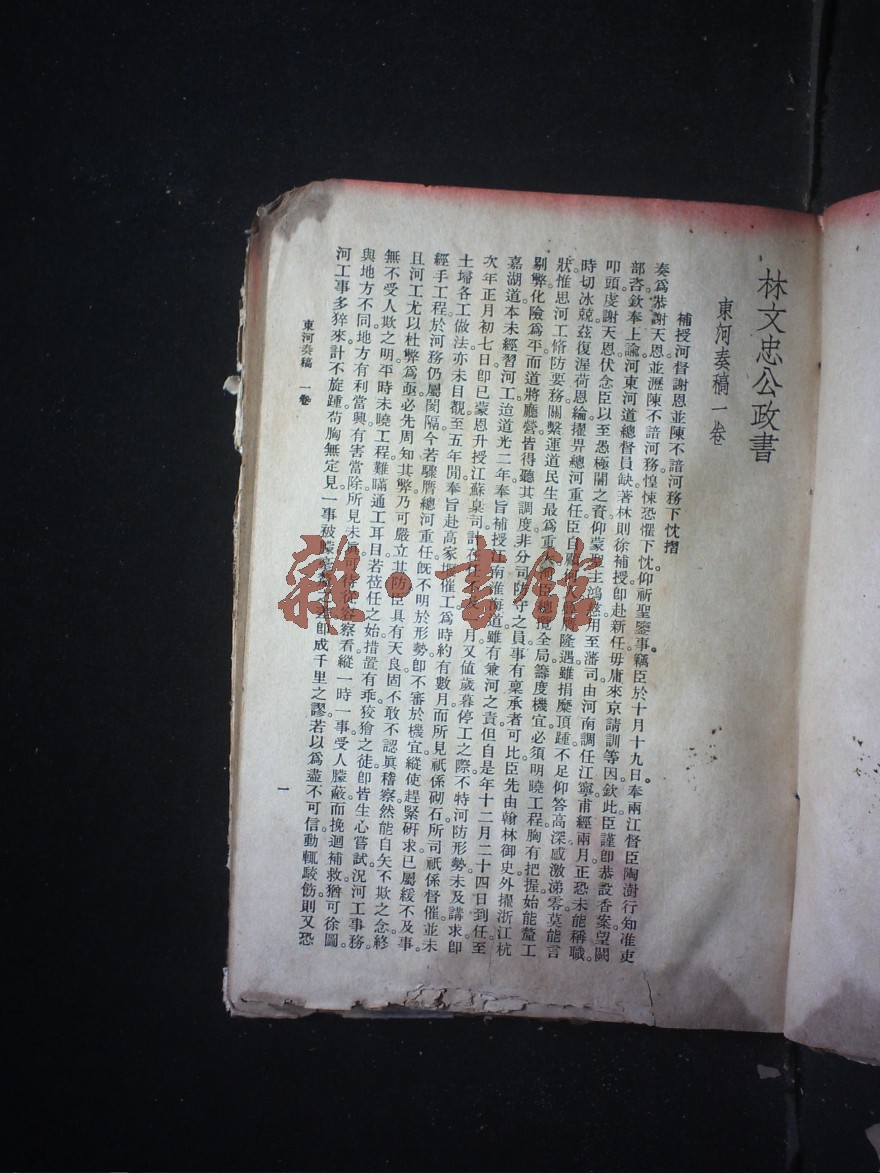 林文忠公政書
東河奏稿 一卷
補授河督謝恩並陳不諳河務下忱摺
奏爲恭謝天恩並瀝陳不諳河務惶悚恐懼下忱仰祈聖鑒事竊臣於十月十九日奉兩江督臣陶澍行知准吏
部咨欽奉上諭河東河道總督員缺著林則徐補授卽赴新任毋庸來京請訓等因欽此臣謹卽恭設香案望闕
叩頭虔謝天恩伏念臣以至愚極闇之資仰蒙 主鴻慈 用至藩司由河南調任江寧甫經兩月正恐未能稱職
時切冰兢茲復渥荷恩綸擢畀總河重任臣自 隆遇雖捐糜頂踵不足仰答高深感激涕零莫能言
狀惟思河工脩防要務關繫運道民生最爲重 臣總攬全局籌度機宜必須明曉工程胸有把握始能釐工
剔弊化險爲平而道將廳營皆得聽其調度非分司防守之員事有稟承者可比臣先由翰林御史外擢浙江杭
嘉湖道本未經習河工迨道光二年奉旨補授江南淮海道雖有兼河之責但自是年十二月二十四日到任至
次年正月初七日卽已蒙恩升授江蘇臬司計在任 月又值歲暮停工之際不特河防形勢未及講求卽
土埽各工做法亦未目覩至五年閒奉旨赴高家堰催工爲時約有數月而所見祇係砌石所司祇係督催並未
經手工程於河務仍屬閡隔今若驟膺總河重任旣不明於形勢卽不審於機宜縱使趕緊硏求已屬緩不及事
且河工尤以杜弊爲亟必先周知其弊乃可嚴立其防臣具有天良固不敢不認眞稽察然能自矢不欺之念終
無不受人欺之明平時未曉工程難瞞通工耳目若莅任之始措置有乖狡獪之徒卽皆生心嘗試況河工事務
與地方不同地方有利當興有害當除所見未眞 待從容察看縱一時一事受人朦蔽而挽迴補救猶可徐圖
河工事多猝來計不旋踵苟胸無定見一事被朦 卽成千里之謬若以爲盡不可信動輒駮飭則又恐
東河奏稿 一卷
一
雜·書館